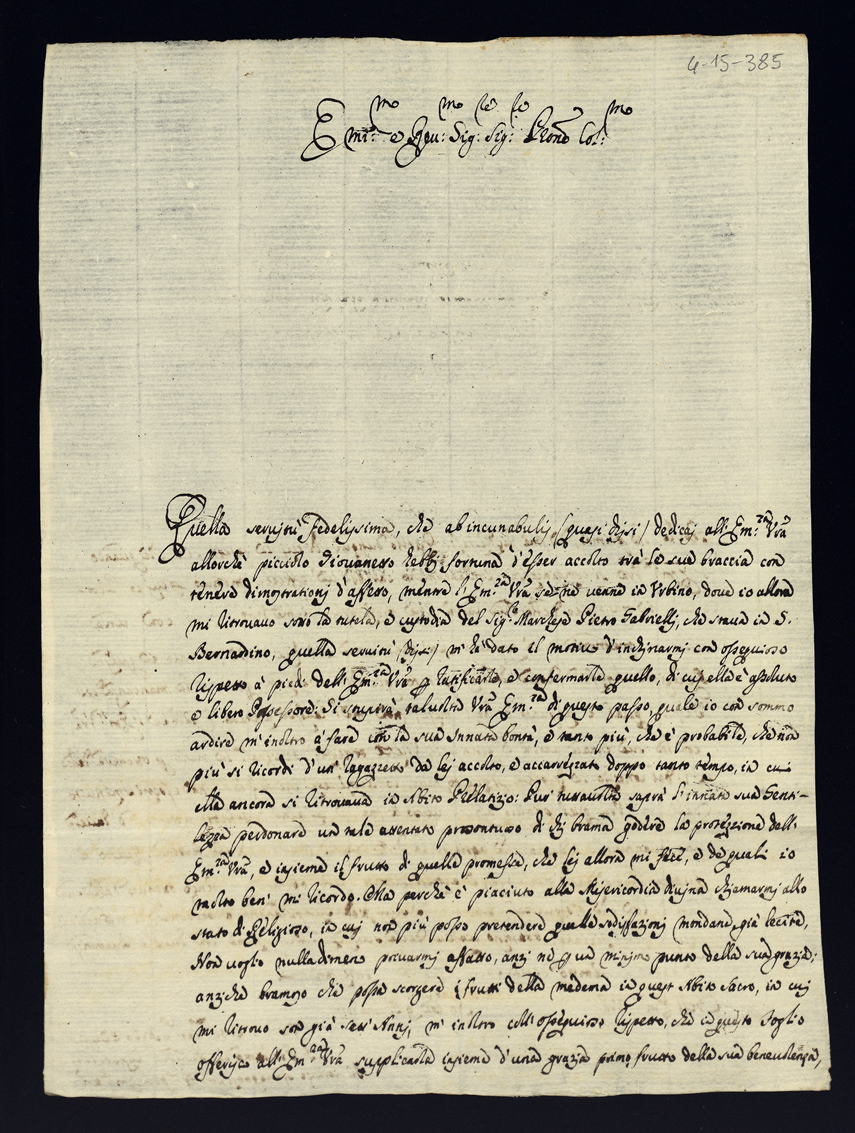 4-15-385
Em.mo e Reu:mo Sig:re Sig:re Prone Col:mo
Quella seruitù fedelissima, che ab incunabulis (quasi dissi) dedicaj all'Em:za Vrã
allorchè picciolo Giouanetto hebbj fortuna d'esser accolto trà le sue braccia con
tenere dimostrationj d'affetto, mentre l'Em:za Vrã se ne venne in Vrbino, doue io allora
mi ritrouauo sotto la tutela, e custodia del Sig:r Marchese Pietro Gabriellj, che staua in S.
Bernardino, quella seruitù (dissi) m'hà dato il motiuo d'inchinarmj con ossequioso
rispetto à piedi dell'Em:za Vrã p ratificarle, e confermarle quello, di cuj ella è assoluto
e libero Possessore: Si stupirà talvolta Vrã Em:za di questo passo, quale io con sommo
ardire m'inoltro à fare con la sua Innata bontà, e tanto più, che è probabile, che non
più si ricordi d'un ragazzetto da lej accolto, e accarezzato doppo tanto tempo, in cui
ella ancora si ritrouaua in Abito Prelatizio: Pur tuttauolta saprà l'innata sua Genti-
lezza perdonare un tale attentato prosontuoso di chj brama godere la protezzione dell'
Em:za Vrã, e insieme il frutto di quelle promesse, che lej allora mi fece, e de quali io
molto ben' mi ricordo. Ma perchè è piaciuto alla Misericordia diuina chiamarmj allo
stato di Religioso, in cuj non più posso pretendere quelle sodisfazionj mondane, già lecite,
Non uoglio nulladimeno priuarmj affatto, anzi nè p un minimo punto della sua grazia;
anzi che bramoso che possa scorgere i frutti della medema in quest'Abito Sacro, in cuj
mi ritrouo son già sette Annj, m'inoltro coll'ossequioso rispetto, che in questo Foglio
offerisco all'Em:za Vrã supplicarla insieme d'una grazia primo frutto della sua beneuolenza,